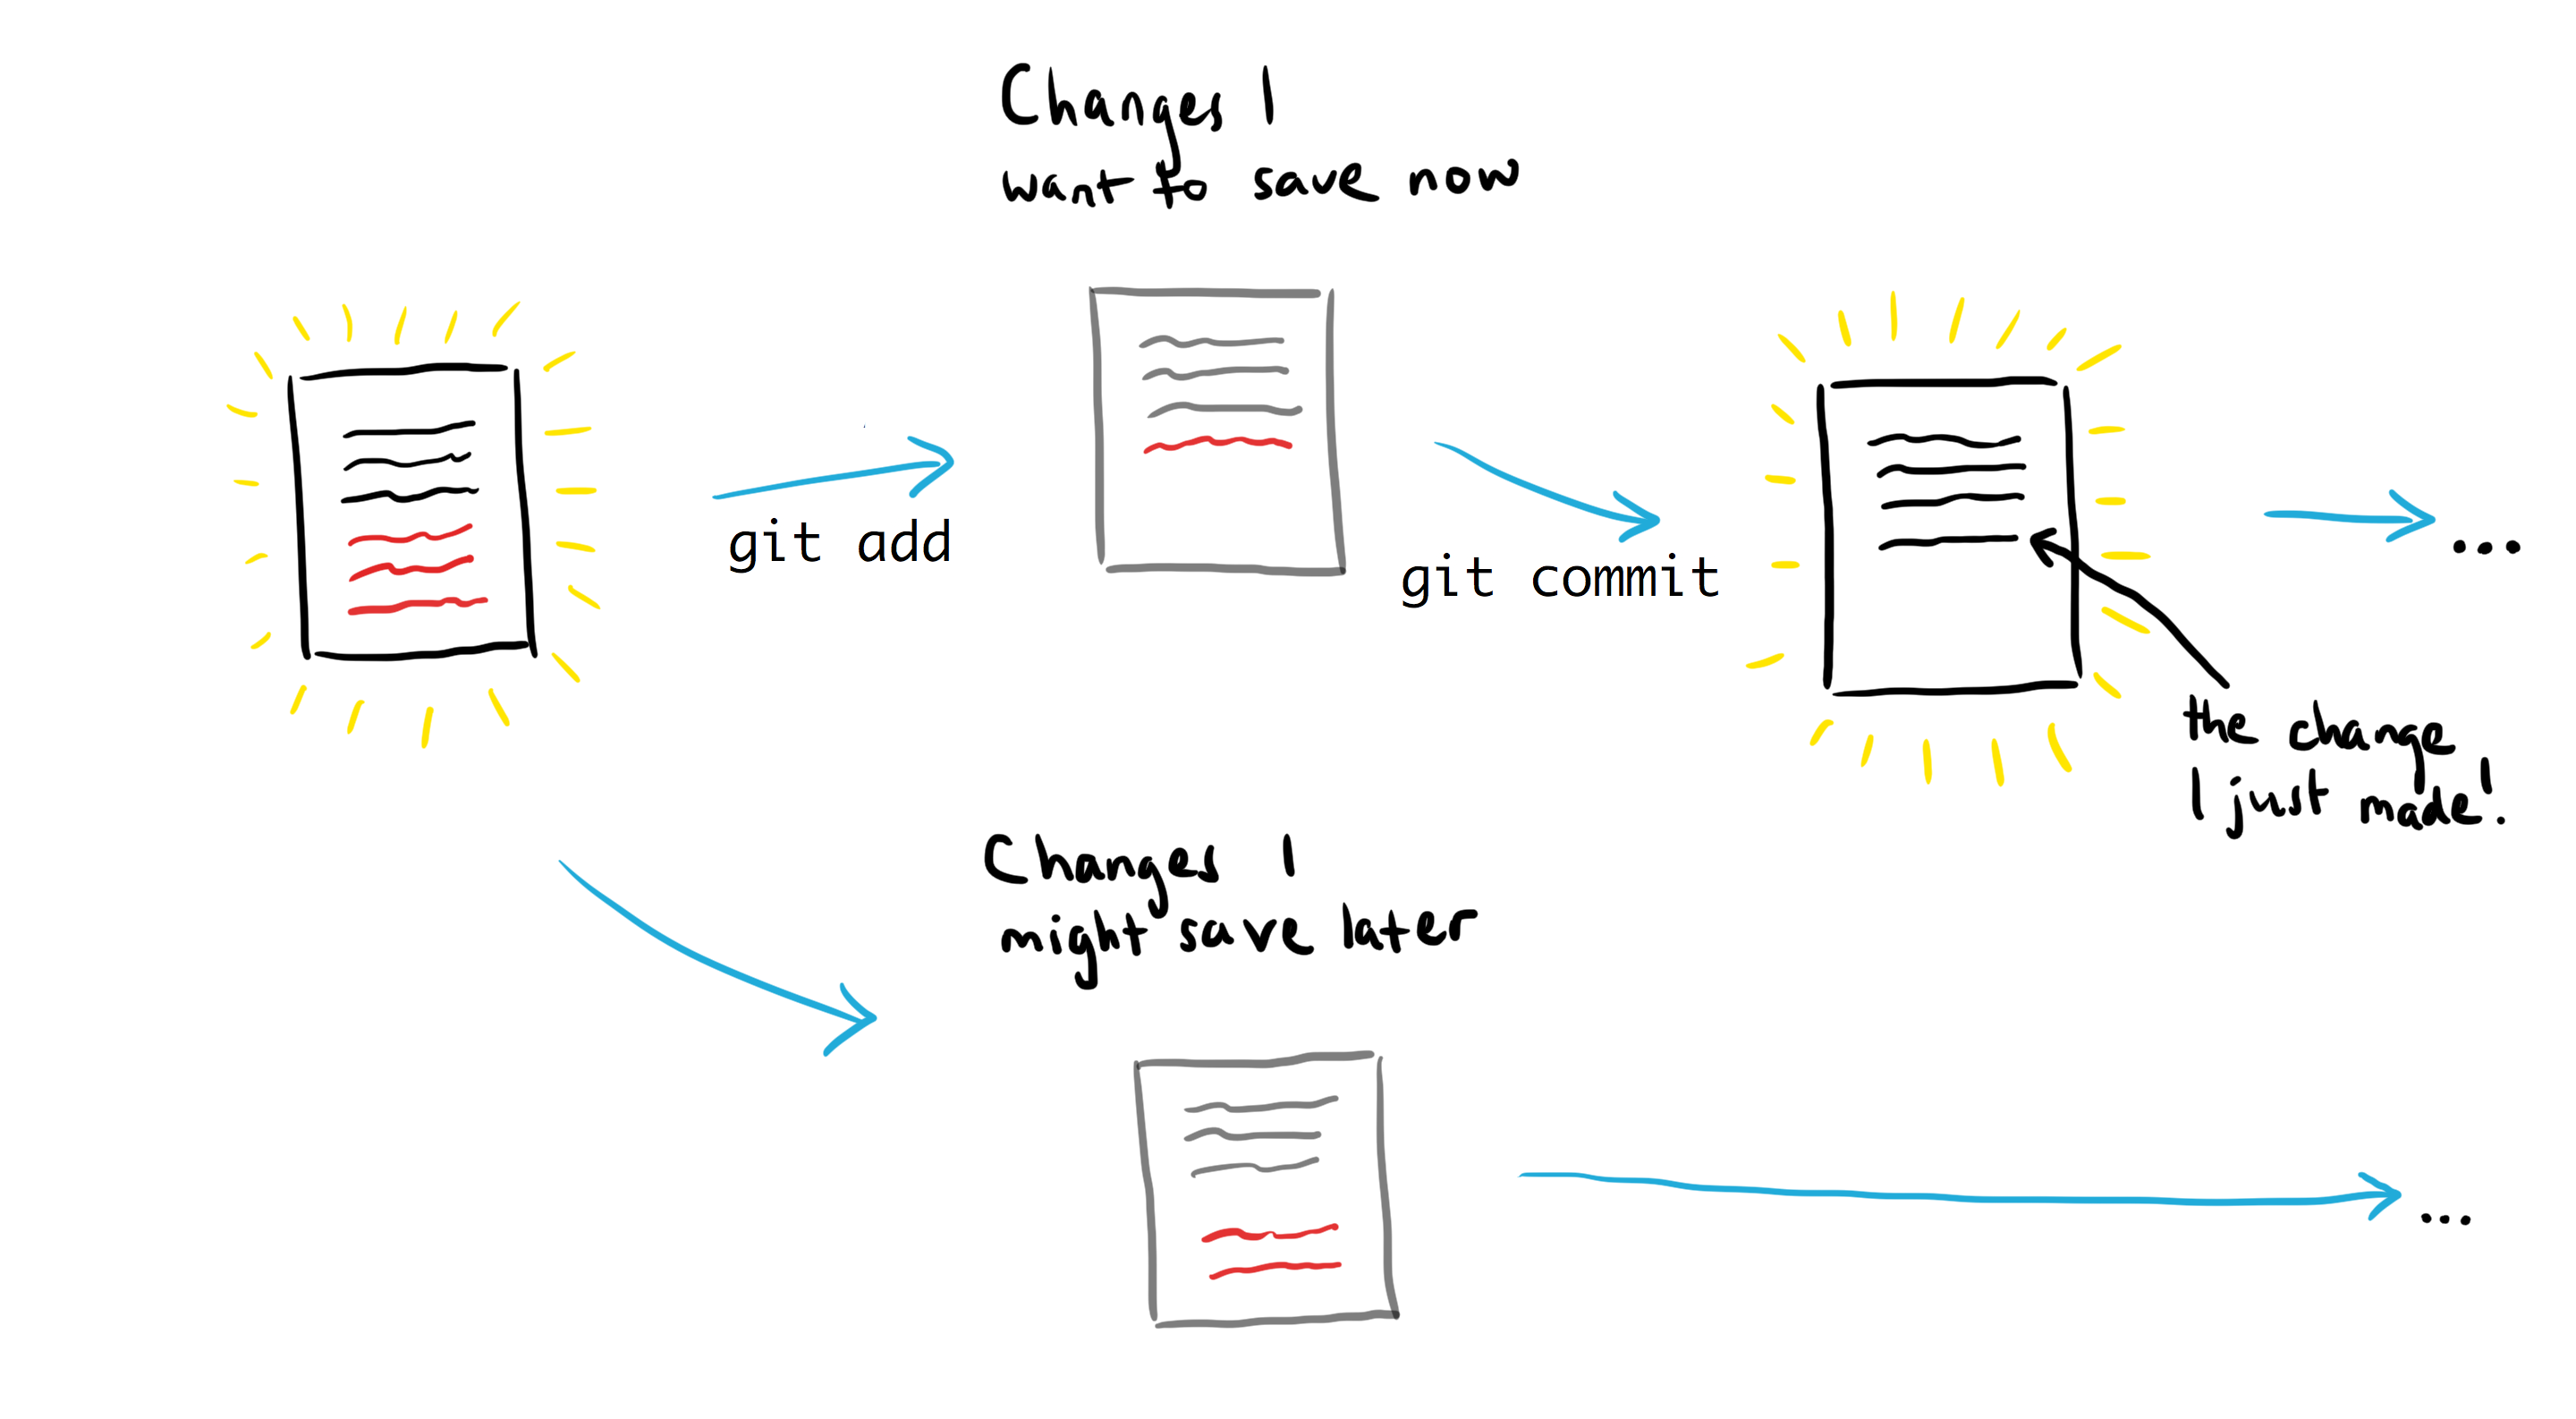 Changes I
want to save now
git add
git commit
...
the change
I just made!
Changes I
might save later
...